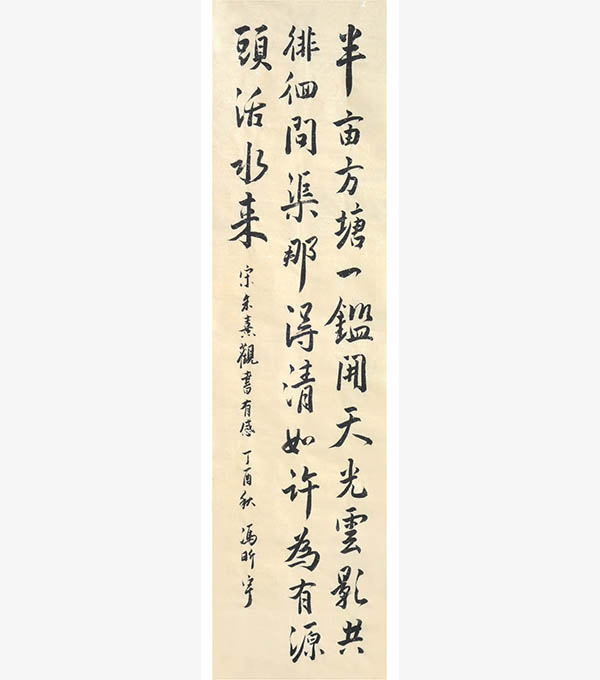 半亩方塘一鑑開天光雲影共
徘徊問渠那得清如许為有源
頭活水来
宋朱熹觀書有感 丁酉秋 馮昕宇